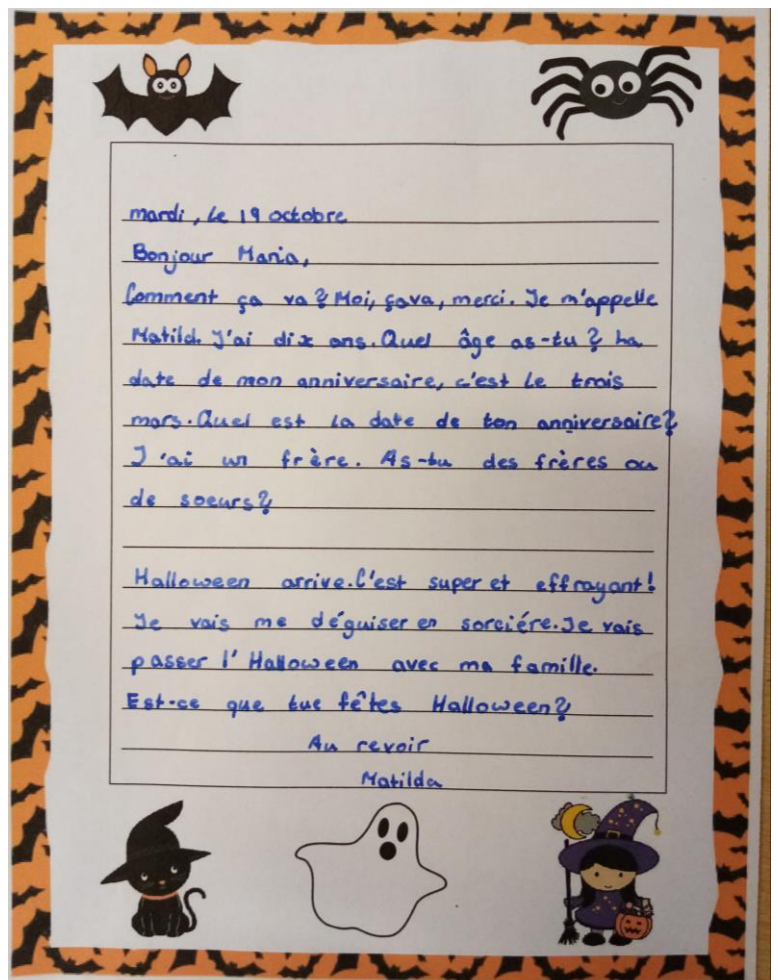 mardi, le 19 octobre
Bonjour Maria,
Comment ça va? Moi, ça va, merci. Je m'appelle
Matild. J'ai dix ans. Quel âge as-tu? La
date de mon anniversaire, c'est le trois
mars. Quel est la date de ton anniversaire?
J'ai un frère. As-tu des frères ou
de soeurs?
Halloween arrive. C'est super et effrayant!
Je vais me déguiser en sorciére. Je vais
passer l'Halloween avec ma famille.
Est-ce que tue fêtes Halloween?
Au revoir
Matilda